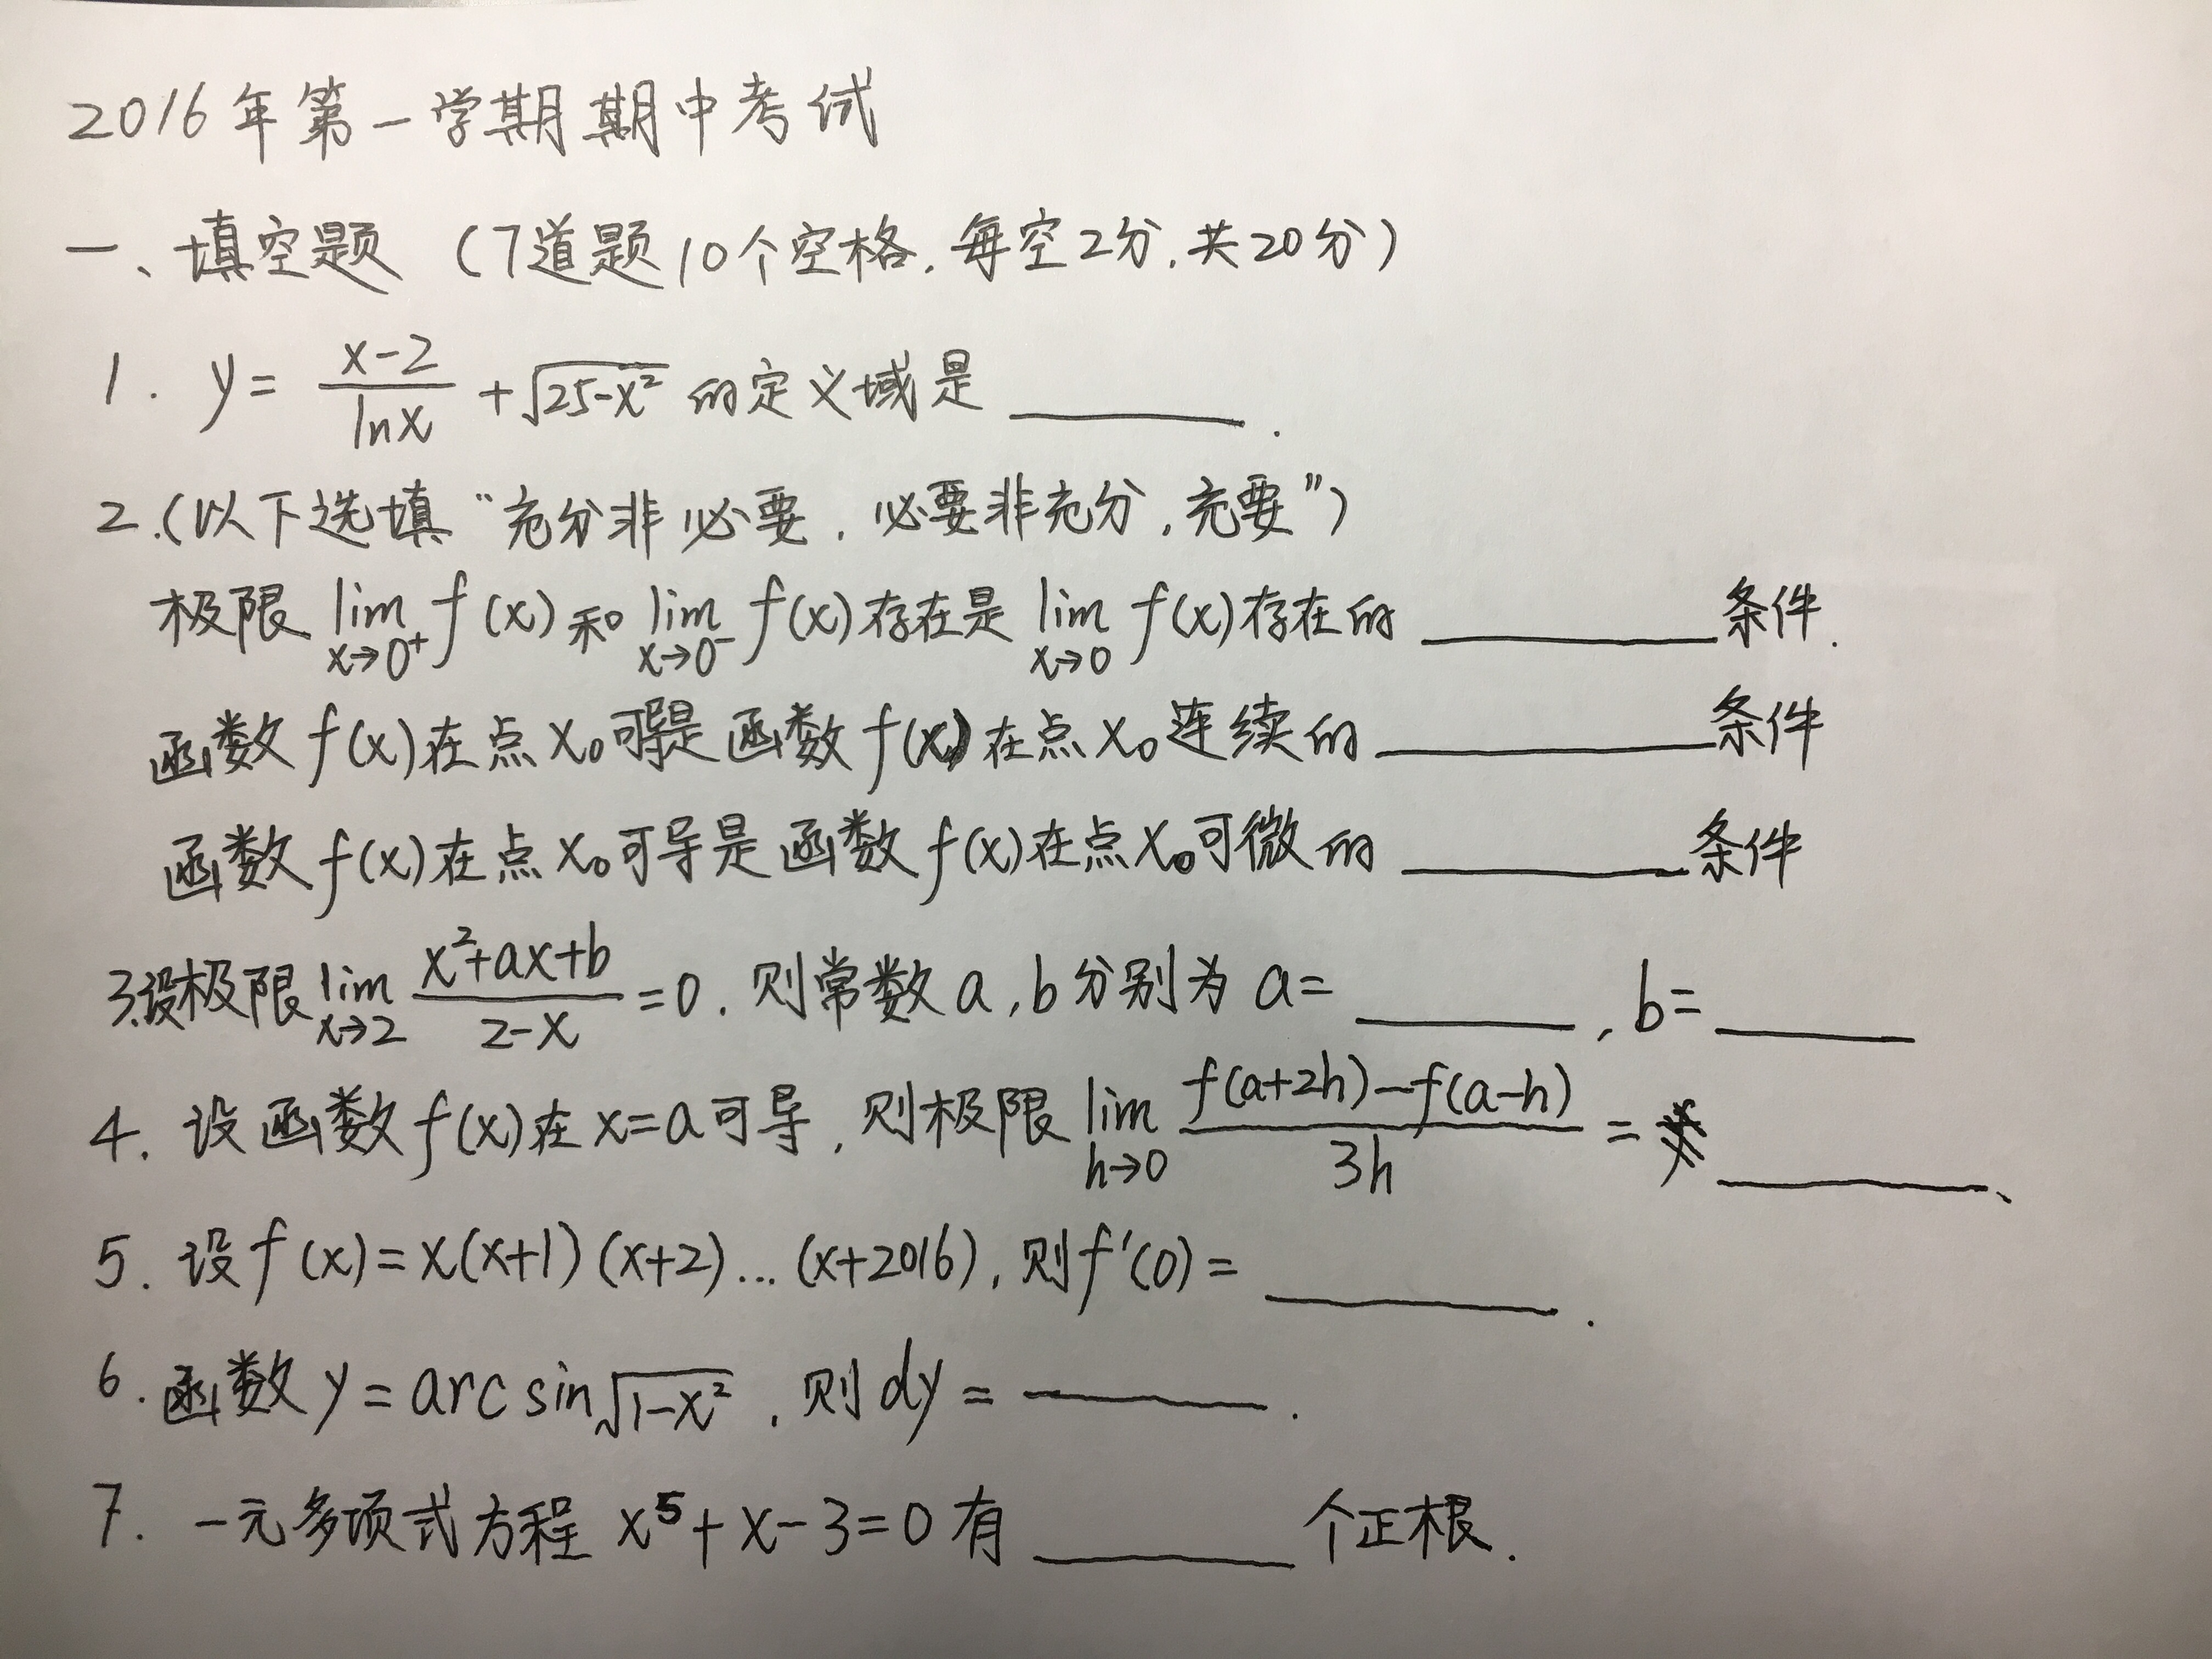 2016年第一学期期中考试
一、填空题 (7道题10个空格,每空2分,共20分)
1. y = \frac{x-2}{\ln x} + \sqrt{25-x^2} 的定义域是 ______.
2.(以下选填“充分非必要,必要非充分,充要”)
极限 \lim_{x→0^+} f(x) 和 \lim_{x→0^-} f(x) 存在是 \lim_{x→0} f(x) 存在的 ______ 条件.
函数 f(x) 在点 x_0 可导是 函数 f(x) 在点 x_0 连续的 ______ 条件
函数 f(x) 在点 x_0 可导是 函数 f(x) 在点 x_0 可微的 ______ 条件
3.设极限 \lim_{x→2} \frac{x^2+ax+b}{2-x} = 0. 则常数 a,b 分别为 a= ______, b= ______
4. 设函数 f(x) 在 x=a 可导,则极限 \lim_{h→0} \frac{f(a+2h)-f(a-h)}{3h} = ______、
5. 设 f(x) = x(x+1)(x+2)...(x+2016), 则 f'(0) = ______.
6. 函数 y = arc sin \sqrt{1-x^2}, 则 dy = ______.
7. 一元多项式方程 x^5 + x - 3 = 0 有 ______ 个正根.